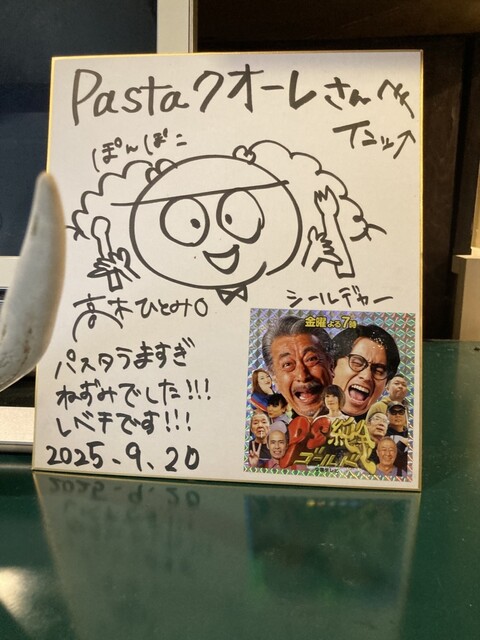 Pastaクオーレさんへ
ぽんぽこ
高木ひとみ〇
シールデャー
パスタうますぎ
ねずみでした!!!
レベチです!!!
2025.9.20
金曜よる7時
PS純金
ゴールド